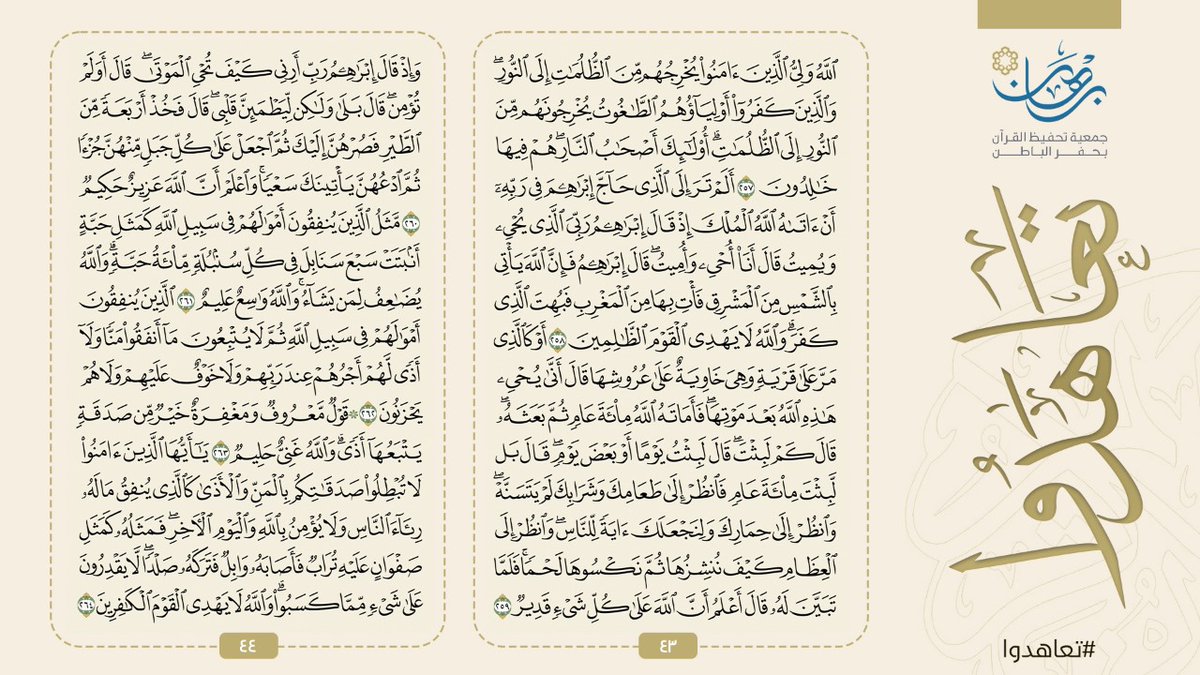 برهان
جمعية تحفيظ القرآن
بحفر الباطن
تعاهدوا
#تعاهدوا
ٱللَّهُ وَلِيُّ ٱلَّذِينَ ءَامَنُوا۟ يُخْرِجُهُم مِّنَ ٱلظُّلُمَـٰتِ إِلَى ٱلنُّورِ ۖ
وَٱلَّذِينَ كَفَرُوٓا۟ أَوْلِيَآؤُهُمُ ٱلطَّـٰغُوتُ يُخْرِجُونَهُم مِّنَ
ٱلنُّورِ إِلَى ٱلظُّلُمَـٰتِ ۗ أُو۟لَـٰٓئِكَ أَصْحَـٰبُ ٱلنَّارِ ۖ هُمْ فِيهَا
خَـٰلِدُونَ ٢٥٧ أَلَمْ تَرَ إِلَى ٱلَّذِى حَآجَّ إِبْرَٰهِـۧمَ فِى رَبِّهِۦٓ
أَنْ ءَاتَىٰهُ ٱللَّهُ ٱلْمُلْكَ إِذْ قَالَ إِبْرَٰهِـۧمُ رَبِّىَ ٱلَّذِى يُحْىِۦ
وَيُمِيتُ قَالَ أَنَا۠ أُحْىِۦ وَأُمِيتُ ۖ قَالَ إِبْرَٰهِـۧمُ فَإِنَّ ٱللَّهَ يَأْتِى
بِٱلشَّمْسِ مِنَ ٱلْمَشْرِقِ فَأْتِ بِهَا مِنَ ٱلْمَغْرِبِ فَبُهِتَ ٱلَّذِى
كَفَرَ ۗ وَٱللَّهُ لَا يَهْدِى ٱلْقَوْمَ ٱلظَّـٰلِمِينَ ٢٥٨ أَوْ كَٱلَّذِى
مَرَّ عَلَىٰ قَرْيَةٍ وَهِىَ خَاوِيَةٌ عَلَىٰ عُرُوشِهَا قَالَ أَنَّىٰ يُحْىِۦ
هَـٰذِهِ ٱللَّهُ بَعْدَ مَوْتِهَا ۖ فَأَمَاتَهُ ٱللَّهُ مِا۟ئَةَ عَامٍ ثُمَّ بَعَثَهُۥ ۖ
قَالَ كَمْ لَبِثْتَ ۖ قَالَ لَبِثْتُ يَوْمًا أَوْ بَعْضَ يَوْمٍ ۖ قَالَ بَل
لَّبِثْتَ مِا۟ئَةَ عَامٍ فَٱنظُرْ إِلَىٰ طَعَامِكَ وَشَرَابِكَ لَمْ يَتَسَنَّهْ ۖ
وَٱنظُرْ إِلَىٰ حِمَارِكَ وَلِنَجْعَلَكَ ءَايَةً لِّلنَّاسِ ۖ وَٱنظُرْ إِلَى
ٱلْعِظَامِ كَيْفَ نُنشِزُهَا ثُمَّ نَكْسُوهَا لَحْمًا ۚ فَلَمَّا
تَبَيَّنَ لَهُۥ قَالَ أَعْلَمُ أَنَّ ٱللَّهَ عَلَىٰ كُلِّ شَىْءٍ قَدِيرٌ ٢٥٩
٤٣
وَإِذْ قَالَ إِبْرَٰهِـۧمُ رَبِّ أَرِنِى كَيْفَ تُحْىِ ٱلْمَوْتَىٰ ۖ قَالَ أَوَلَمْ
تُؤْمِن ۖ قَالَ بَلَىٰ وَلَـٰكِن لِّيَطْمَئِنَّ قَلْبِى ۖ قَالَ فَخُذْ أَرْبَعَةً مِّنَ
ٱلطَّيْرِ فَصُرْهُنَّ إِلَيْكَ ثُمَّ ٱجْعَلْ عَلَىٰ كُلِّ جَبَلٍ مِّنْهُنَّ جُزْءًا
ثُمَّ ٱدْعُهُنَّ يَأْتِينَكَ سَعْيًا ۚ وَٱعْلَمْ أَنَّ ٱللَّهَ عَزِيزٌ حَكِيمٌ
٢٦٠ مَّثَلُ ٱلَّذِينَ يُنفِقُونَ أَمْوَٰلَهُمْ فِى سَبِيلِ ٱللَّهِ كَمَثَلِ حَبَّةٍ
أَنۢبَتَتْ سَبْعَ سَنَابِلَ فِى كُلِّ سُنۢبُلَةٍ مِّا۟ئَةُ حَبَّةٍ ۗ وَٱللَّهُ
يُضَـٰعِفُ لِمَن يَشَآءُ ۗ وَٱللَّهُ وَٰسِعٌ عَلِيمٌ ٢٦١ ٱلَّذِينَ يُنفِقُونَ
أَمْوَٰلَهُمْ فِى سَبِيلِ ٱللَّهِ ثُمَّ لَا يُتْبِعُونَ مَآ أَنفَقُوا۟ مَنًّا وَلَآ
أَذًى ۙ لَّهُمْ أَجْرُهُمْ عِندَ رَبِّهِمْ وَلَا خَوْفٌ عَلَيْهِمْ وَلَا هُمْ
يَحْزَنُونَ ٢٦٢ ۞ قَوْلٌ مَّعْرُوفٌ وَمَغْفِرَةٌ خَيْرٌ مِّن صَدَقَةٍ
يَتْبَعُهَآ أَذًى ۗ وَٱللَّهُ غَنِىٌّ حَلِيمٌ ٢٦٣ يَـٰٓأَيُّهَا ٱلَّذِينَ ءَامَنُوا۟
لَا تُبْطِلُوا۟ صَدَقَـٰتِكُم بِٱلْمَنِّ وَٱلْأَذَىٰ كَٱلَّذِى يُنفِقُ مَالَهُۥ
رِئَآءَ ٱلنَّاسِ وَلَا يُؤْمِنُ بِٱللَّهِ وَٱلْيَوْمِ ٱلْـَٔاخِرِ ۖ فَمَثَلُهُۥ كَمَثَلِ
صَفْوَانٍ عَلَيْهِ تُرَابٌ فَأَصَابَهُۥ وَابِلٌ فَتَرَكَهُۥ صَلْدًا ۖ لَّا يَقْدِرُونَ
عَلَىٰ شَىْءٍ مِّمَّا كَسَبُوا۟ ۗ وَٱللَّهُ لَا يَهْدِى ٱلْقَوْمَ ٱلْكَـٰفِرِينَ ٢٦٤
٤٤